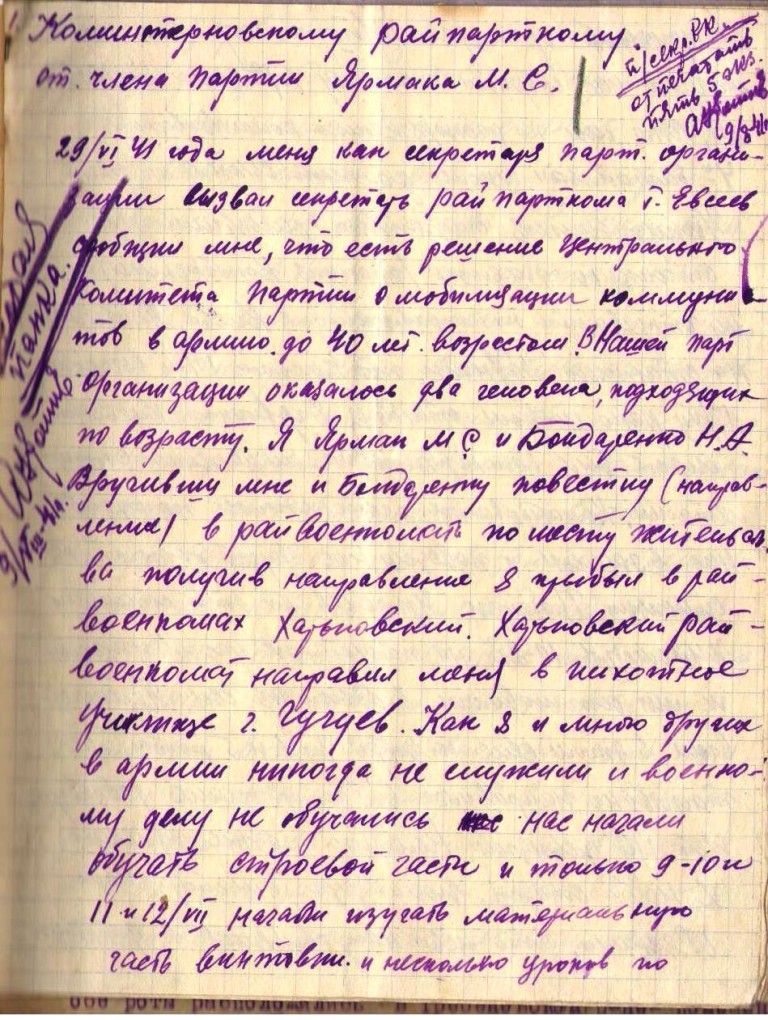 1
Коминтерновскому райпарткому
от члена партии Ярмака М. С.
п/секр. РК.
отпечатать
пять 5 экз.
19/8-41г
29/VI 41 года меня как секретаря парт. органи-
зации вызвал секретарь райпарткома т. Евсеев
сообщил мне, что есть решение Центрального
Комитета Партии о мобилизации коммунис
тов в армию до 40 лет возрастом. В нашей парт
организации оказалось два человека, подходящих
по возрасту. Я Ярмак М С и Бондаренко Н. А.
Вручивши мне и Бондаренку повестку (направ-
ление) в райвоенкомат по месту жительст
ва получив направление я прибыл в рай-
военкомах Харьковский. Харьковский рай-
военкомат направил меня в пихотное
училище г. Чугуев. Как я и много других
в армии никогда не служили и военно-
му делу не обучались нас начали
обучать строевой части и только 9-10 и
11 и 12/VII начали изучать материальную
часть винтовки. и несколько уроков по
папка.